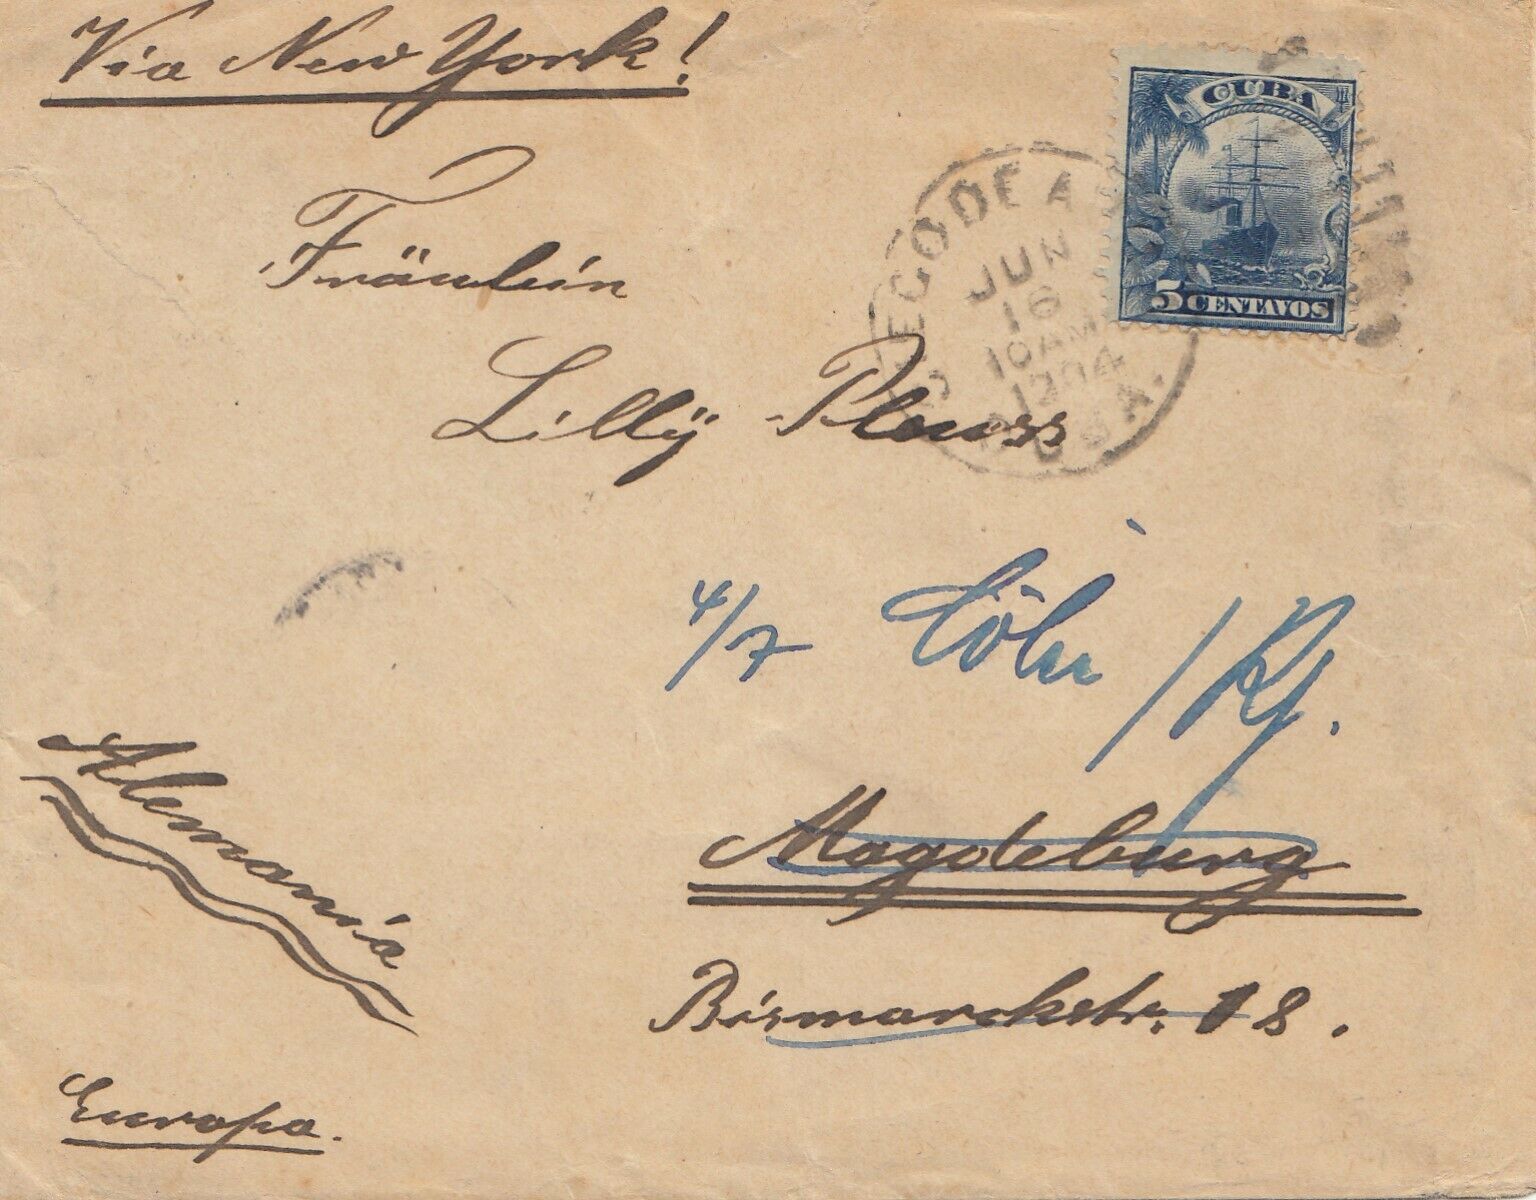 Via New York!
CUBA
5 CENTAVOS
CIEGO DE A
JUN
16
10 AM
1904
CUBA.
Fräulein
Lilly Plouss
4/7 Cöln /Rh.
Magdeburg
Bismarckstr. 18.
Alemania
Europa.